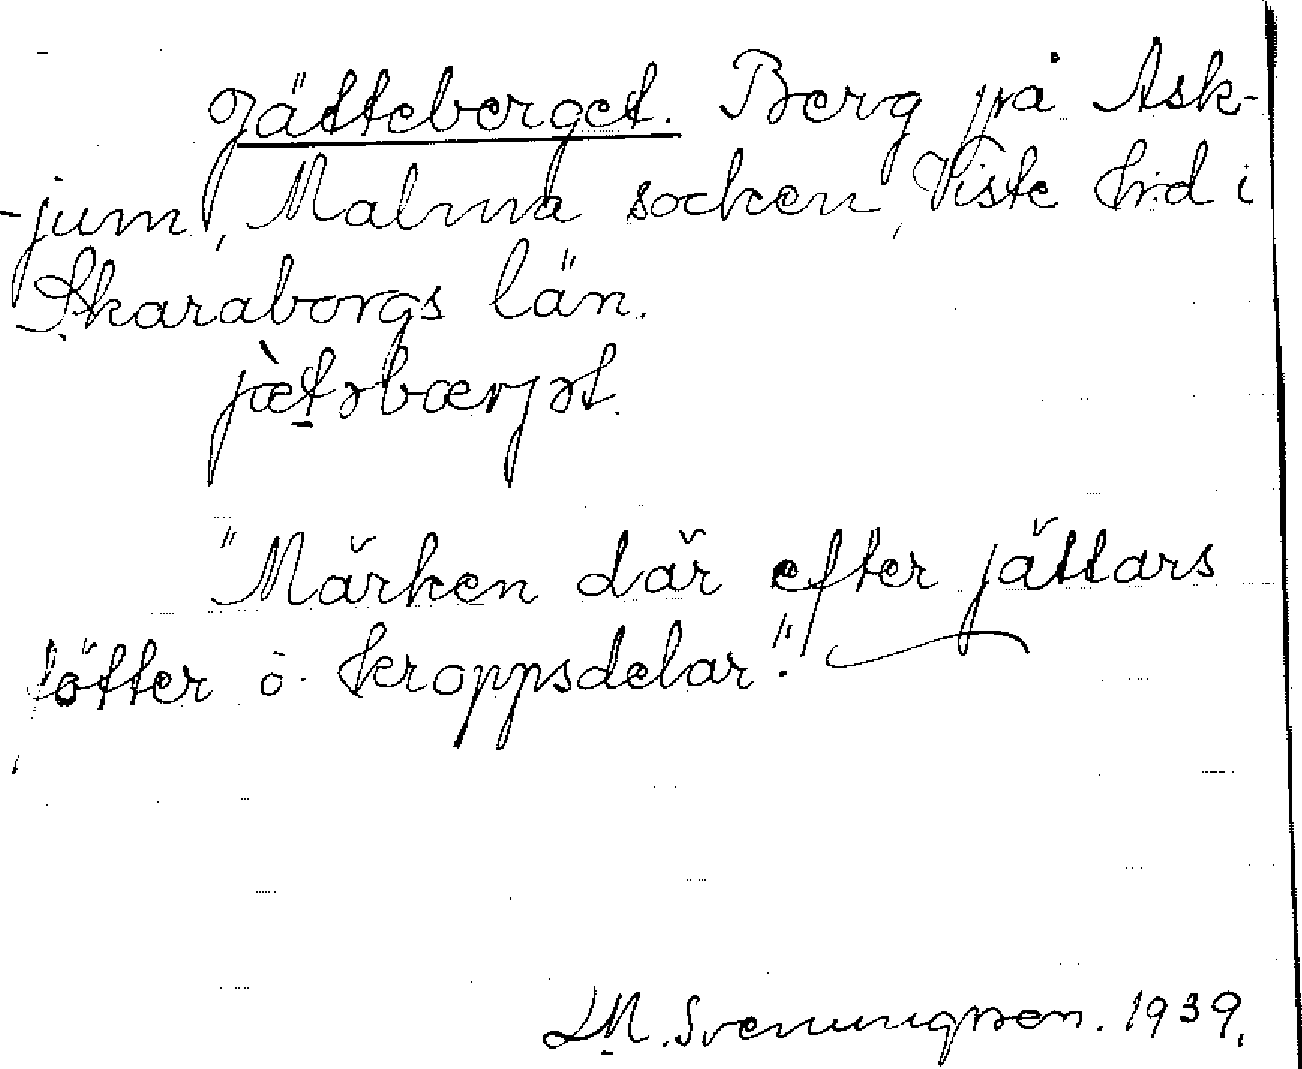 Jätteberget. Berg på Ask-
-jum, Malma socken, Viste hrd i
Skaraborgs län.
jæ̀təbærjət.
"Märken där efter jättars
fötter o kroppsdelar".
L.M. Svenungsson. 1939.